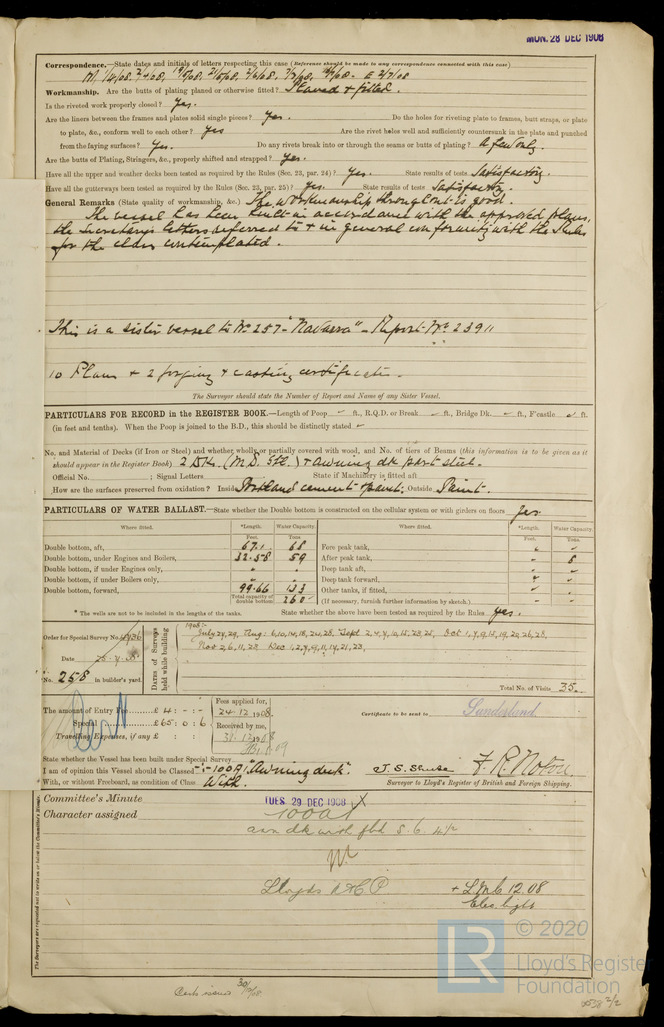 MON. 28 DEC 1908
Correspondence.—State dates and initials of letters respecting this case (Reference should be made to any correspondence connected with this case)
Workmanship. Are the butts of plating planed or otherwise fitted? Planed & fitted.
Is the riveted work properly closed? Yes.
Are the liners between the frames and plates solid single pieces? Yes. Do the holes for riveting plate to frames, butt straps, or plate
to plate, &c., conform well to each other? Yes Are the rivet holes well and sufficiently countersunk in the plate and punched
from the faying surfaces? Yes. Do any rivets break into or through the seams or butts of plating? A few only.
Are the butts of Plating, Stringers, &c., properly shifted and strapped? Yes.
Have all the upper and weather decks been tested as required by the Rules (Sec. 23, par. 24)? Yes. State results of tests Satisfactory.
Have all the gutterways been tested as required by the Rules (Sec. 23, par. 25)? Yes. State results of tests Satisfactory.
General Remarks (State quality of workmanship, &c.) The workmanship throughout is good.
The vessel has been built in accordance with the approved plans,
the Secretary's letters referred to & in general conformity with the Rules
for the class contemplated.
This is a sister vessel to No 257 "Navarra" - Report No 23911
10 Plans & 2 forging & casting certificates.
The Surveyor should state the Number of Report and Name of any Sister Vessel.
PARTICULARS FOR RECORD in the REGISTER BOOK.—Length of Poop ft., R.Q.D. or Break ft., Bridge Dk. ft., F'castle ft.
(in feet and tenths). When the Poop is joined to the B.D., this should be distinctly stated
No. and Material of Decks (if Iron or Steel) and whether wholly or partially covered with wood, and No. of tiers of Beams (this information is to be given as it
should appear in the Register Book) 2 Dks. (M.D. Stl.) & awning dk part steel.
Official No. ; Signal Letters State if Machinery is fitted aft
How are the surfaces preserved from oxidation? Inside Portland cement & paint. Outside Paint.
PARTICULARS OF WATER BALLAST.—State whether the Double bottom is constructed on the cellular system or with girders on floors Yes
Where fitted. *Length. Water Capacity. Where fitted. *Length. Water Capacity.
Feet. Tons Feet. Tons.
Double bottom, aft, 67.1 68 Fore peak tank,
Double bottom, under Engines and Boilers, 32.58 59 After peak tank, 8
Double bottom, if under Engines only, Deep tank aft,
Double bottom, if under Boilers only, Deep tank forward,
Double bottom, forward, 99.66 133 Other tanks, if fitted,
Total capacity of double bottom 260 (If necessary, furnish further information by sketch.)
* The wells are not to be included in the lengths of the tanks. State whether the above have been tested as required by the Rules Yes.
Order for Special Survey No.
Date
No. 258 in builder's yard.
DATES of Surveys held while building
1908:-
Total No. of Visits 35.
The amount of Entry Fee £ 4 : - : - Fees applied for,
Special £65 : 0 : 6 24.12.1908.
Travelling Expenses, if any £ : : Received by me,
Certificate to be sent to Sunderland.
State whether the Vessel has been built under Special Survey
I am of opinion this Vessel should be Classed 100A1 "Awning deck".
With, or without Freeboard, as condition of Class With.
Surveyor to Lloyd's Register of British and Foreign Shipping.
Committee's Minute TUES. 29 DEC 1908
Character assigned 100A1
awn dk with fbd
Lloyds A&CP + LMC 12.08
Elec. light
The Surveyors are requested not to write on or below the Committee's Minute.
© 2020
LR
Lloyd's Register
Foundation